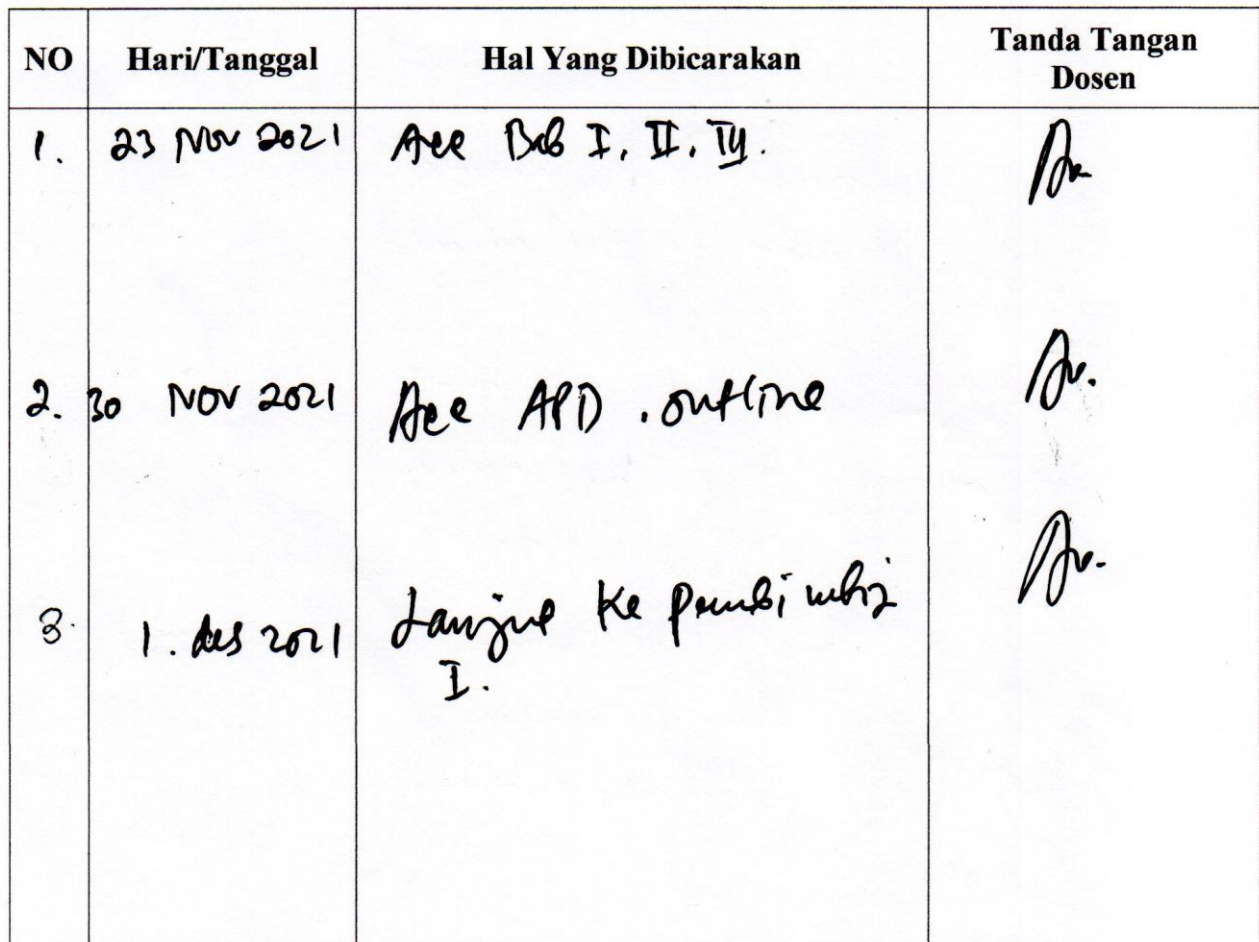 NO Hari/Tanggal Hal Yang Dibicarakan Tanda Tangan
Dosen
1. 23 NOV 2021 Acc Bab I, II,
2. 30 NOV 2021 Acc APD. outline
3. 1. des 2021 Lanjut Ke pembimbing
I.